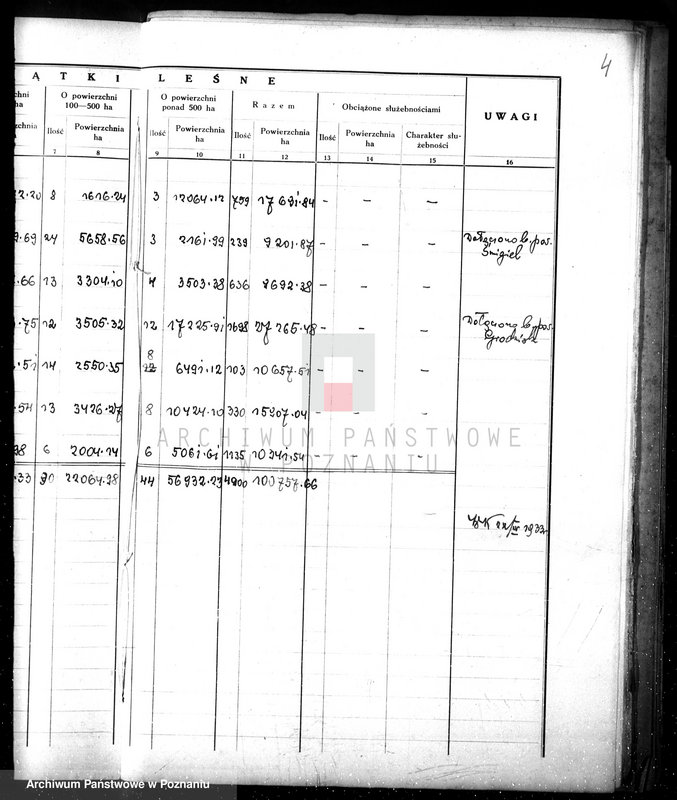 4
ĄTKI LEŚNE
chni
ha
O powierzchni
100—500 ha
O powierzchni
ponad 500 ha
Razem
Obciążone służebnościami
UWAGI
rzchnia
Ilość
Powierzchnia
ha
Ilość
Powierzchnia
ha
Ilość
Powierzchnia
ha
Ilość
Powierzchnia
ha
Charakter słu-
żebności
7 8 9 10 11 12 13 14 15 16
2.20 8 1616.24 3 12064.12 759 17691.84 - - -
9.69 24 5658.56 3 2161.99 239 9201.87 - - - Dołączono b. pow.
Śmigiel
.66 13 3304.10 4 3503.38 636 8692.38 - - -
.75 12 3505.32 12 17225.91 1698 27265.48 - - - Dołączono b. pow.
Grodzisk
8
.51 14 2550.35 12 6491.12 103 10657.51 - - -
.54 13 3426.27 8 10424.10 330 15907.04 - - -
98 6 2004.14 6 5061.61 1135 10341.54 - - -
.33 90 22064.98 44 56932.23 4900 100757.66
1933
ARCHIWUM PAŃSTWOWE
W POZNANIU
Archiwum Państwowe w Poznaniu